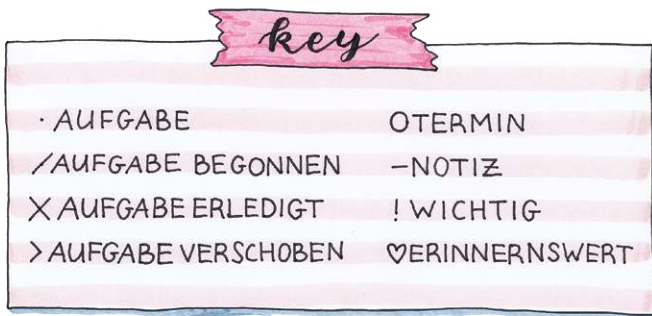 key
· AUFGABE
/AUFGABE BEGONNEN
X AUFGABE ERLEDIGT
>AUFGABE VERSCHOBEN
OTERMIN
–NOTIZ
! WICHTIG
♡ERINNERNSWERT